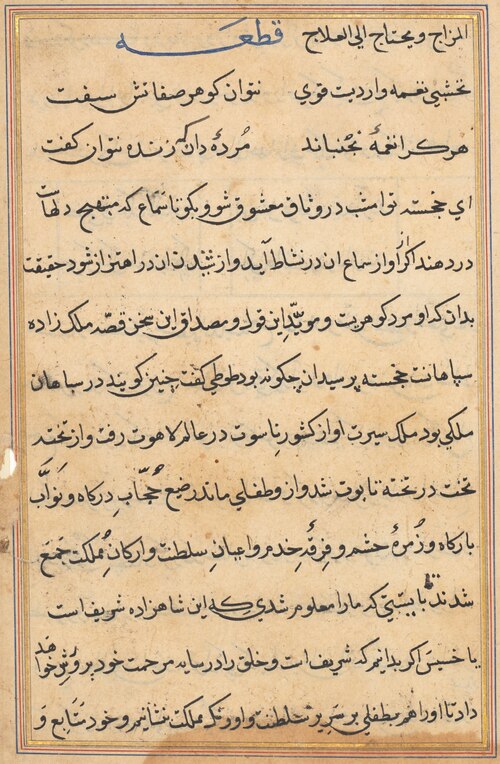 المزاج و یحتاج الی العلاج قطعه
نخشبی نغمه واردیت قوی نتوان کوهر صفاتش سفت
هرکرا نغمهٔ نجنباند مُردهٔ دان که زنده نتوان کفت
ای خجسته تو امشب در وثاق معشوق شو و بکو تا سماع که مهیج دلهاست
در دهند اکر او از سماع ان در نشاط آید و از شنیدن ان در اهتزاز شود حقیقت
بدان که او مرد کوهریت و مویّد این قول و مصداق این سخن قصّه ملک زاده
سپاهانست خجسته پرسید ان چکونه بود طوطی کفت چنین کویند در سپاهان
ملکی بود ملک سیرت او از کشور ناسوت در عالم لاهوت رفت و از تخته
تخت در تخته تابوت شد و از و طفلی ماند رضیع حُجّابِ درکاه و نوّاب
بارکاه و زُمرهٔ حشم و فرقهٔ خدم و اعیانِ سلطنت و ارکانِ مملکت جمع
شدند بایستی که ما را معلوم شدی که این شاهزاده شریف است
یا خسیس اکر بدانیم که شریف است و خلق را در سایه مرحمت خود پرورش خواهد
داد تا او را هم بطفلی بر سریر سلطنت و اورنک مملکت نشانیم و خود متابع و